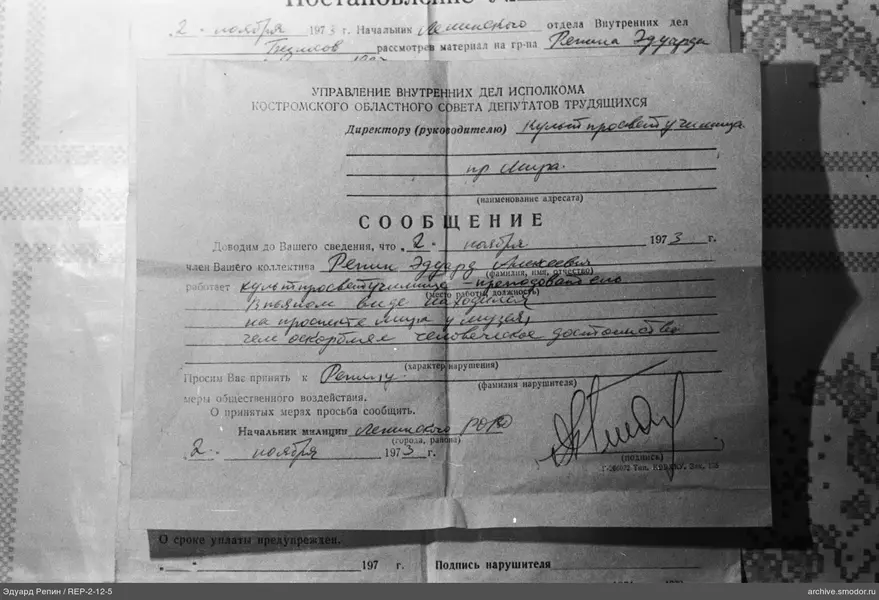 Постановление
2. ноября 1973 г. Начальник Ленинского отдела Внутренних дел
рассмотрев материал на гр-на Репина Эдуарда
УПРАВЛЕНИЕ ВНУТРЕННИХ ДЕЛ ИСПОЛКОМА
КОСТРОМСКОГО ОБЛАСТНОГО СОВЕТА ДЕПУТАТОВ ТРУДЯЩИХСЯ
Директору (руководителю) Культпросветучилища
пр Мира.
(наименование адресата)
СООБЩЕНИЕ
Доводим до Вашего сведения, что 2. ноября 1973 г.
член Вашего коллектива Репин Эдуард Алексеевич
(фамилия, имя, отчество)
работает культпросветучилище - преподаватель
(место работы, должность)
В пьяном виде находился
на проспекте Мира у музея,
чем оскорблял человеческое достоинство
(характер нарушения)
Просим Вас принять к Репину
(фамилия нарушителя)
меры общественного воздействия.
О принятых мерах просьба сообщить.
Начальник милиции Ленинского РОВД
(города, района)
2. ноября 1973 г.
(подпись)
О сроке уплаты предупрежден.
197 г. Подпись нарушителя
Эдуард Репин / REP-2-12-5
archive.smodor.ru